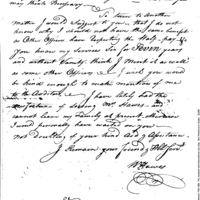 may think Necessary
So turn to another
matter I would Suggest to you that I do not
know why I should not have the same
as Other Officers have Respecting the
You know my Services So far from
and without Vanity think I Merit it as well
as some other Officers I will you would
be kind enough to make mention for me
to the Auditor I have lately had the
misfortune of loosing Mrs Hawes and
cannot leave my Family at present otherwise
I would personally have waited on you
not Doubting of your kind Aid & Assistance
I Remain your friend & Hbl Servt
Hawes